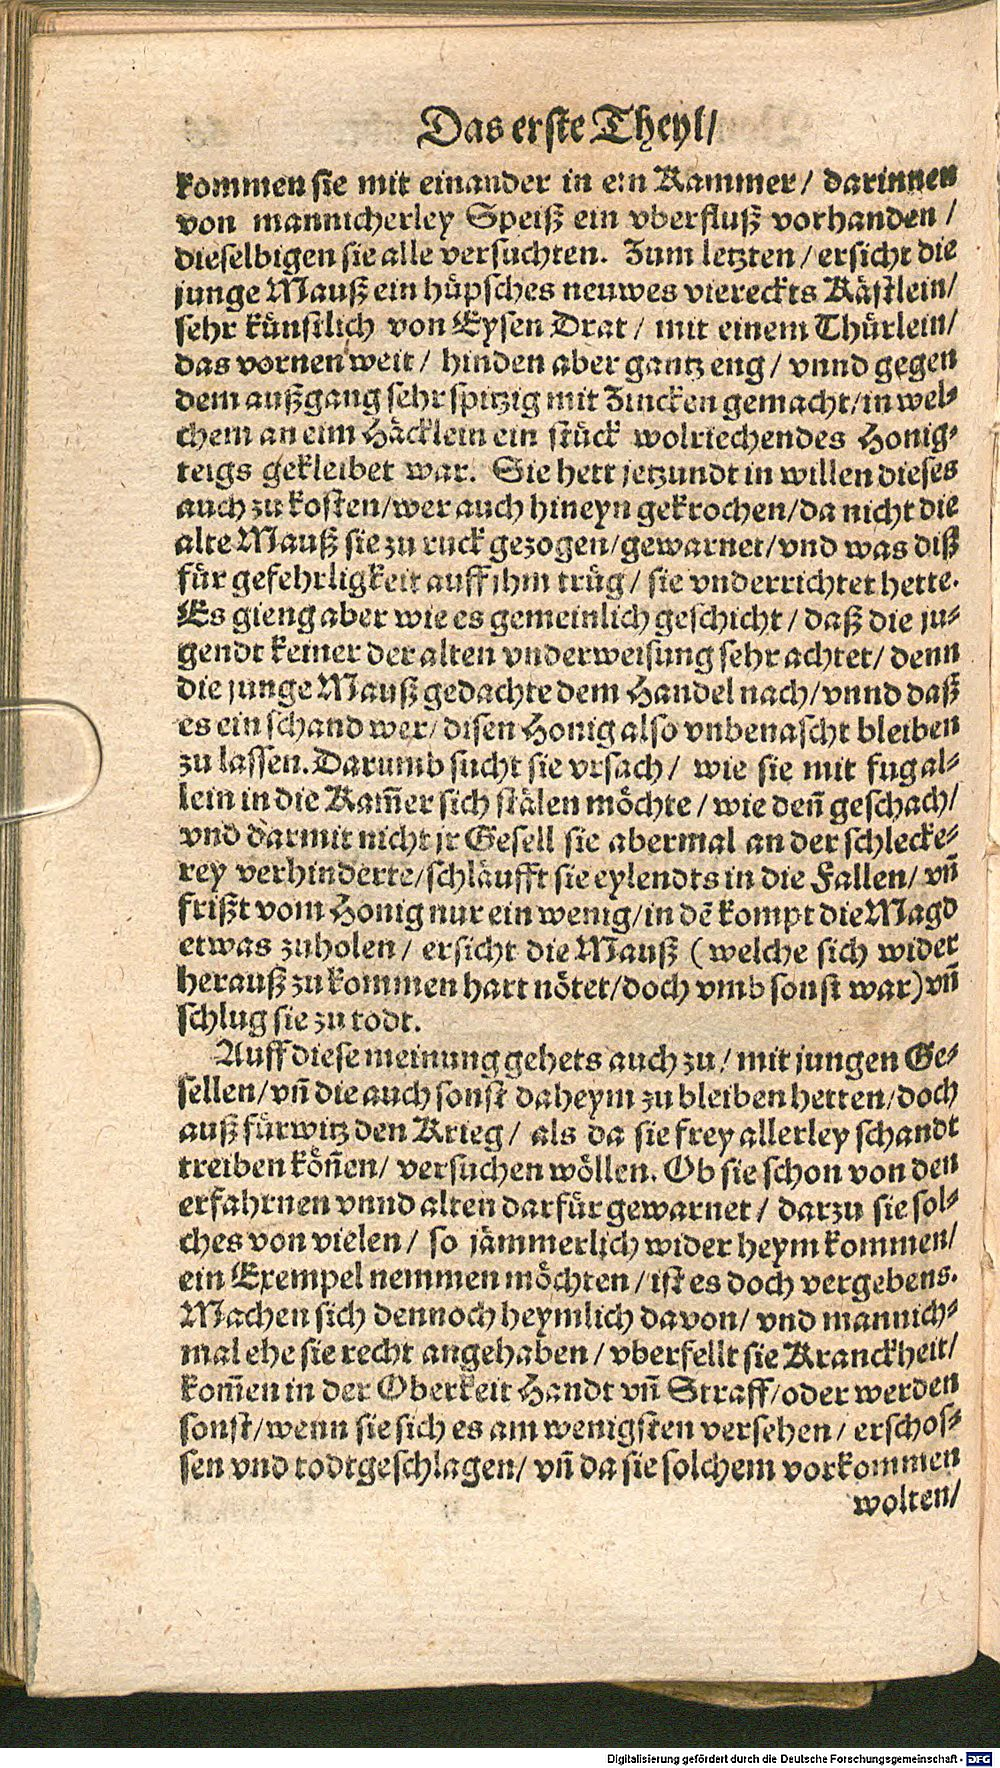 Das erste Theyl/
kommen sie mit einander in ein Kammer/ darinnen
von mannicherley Speiß ein vberfluß vorhanden /
dieselbigen sie alle versuchten. Zum letzten / ersicht die
junge Mauß ein hüpsches neuwes viereckts Kästlein/
sehr künstlich von Eysen Drat / mit einem Thürlein/
das vornen weit / hinden aber gantz eng / vnnd gegen
dem außgang sehr spitzig mit Zincken gemacht/in wel-
chem an eim Häcklein ein stück wolriechendes Honig-
teigs gekleibet war. Sie hett jetzundt in willen dieses
auch zu kosten/wer auch hineyn gekrochen/da nicht die
alte Mauß sie zu ruck gezogen/gewarnet/vnd was diß
für gefehrligkeit auff ihm trüg / sie vnderrichtet hette.
Es gieng aber wie es gemeinlich geschicht / daß die ju-
gendt keiner der alten vnderweisung sehr achtet/ denn
die junge Mauß gedachte dem Handel nach/vnnd daß
es ein schand wer/ disen Honig also vnbenascht bleiben
zu lassen. Darumb sucht sie vrsach / wie sie mit fug al-
lein in die Kam̄er sich stälen möchte / wie den̄ geschach/
vnd darmit nicht jr Gesell sie abermal an der schlecke-
rey verhinderte/schläufft sie eylendts in die Fallen/ vn̄
frißt vom Honig nur ein wenig/in dē kompt die Magd
etwas zuholen / ersicht die Mauß (welche sich wider
herauß zu kommen hart nötet/doch vmb sonst war)vn̄
schlug sie zu todt.
Auff diese meinung gehets auch zu/ mit jungen Ge-
sellen/vn̄ die auch sonst daheym zu bleiben hetten/doch
auß fürwitz den Krieg / als da sie frey allerley schandt
treiben kön̄en/ versuchen wöllen. Ob sie schon von den
erfahrnen vnnd alten darfür gewarnet / darzu sie sol-
ches von vielen / so jämmerlich wider heym kommen/
ein Exempel nemmen möchten / ist es doch vergebens.
Machen sich dennoch heymlich davon/ vnd mannich-
mal ehe sie recht angehaben / vberfellt sie Kranckheit/
kom̄en in der Oberkeit Handt vn̄ Straff/oder werden
sonst/wenn sie sich es am wenigsten versehen / erschos-
sen vnd todtgeschlagen/ vn̄ da sie solchem vorkommen
wolten/
Digitalisierung gefördert durch die Deutsche Forschungsgemeinschaft - DFG